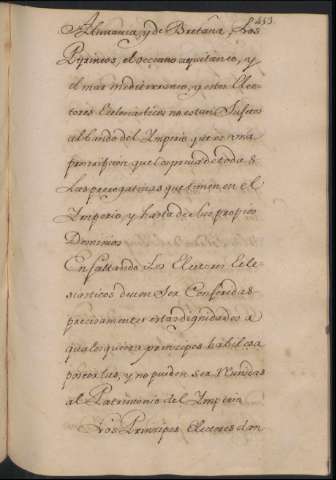 453.
Alemania, y de Bretaña, Los
Pirineos, el occeano aquitanico, y
el mar mediterraneo, y estos Elec-
tores Eclesiasticos no estan Sujetos
al bando del Imperio que es una
proscripcion que los priva de todas
Las prerrogativas que tienen en el
Imperio, y hasta de sus propios
Dominios
En faltando Los Electores Ecle-
siasticos deven Ser Conferidas
precisamente estas dignidades a
qualesquiera principes habiles a
poseerlas, y no pueden ser Vnidas
al Patrimonio del Imperio
Los Principes Electores son